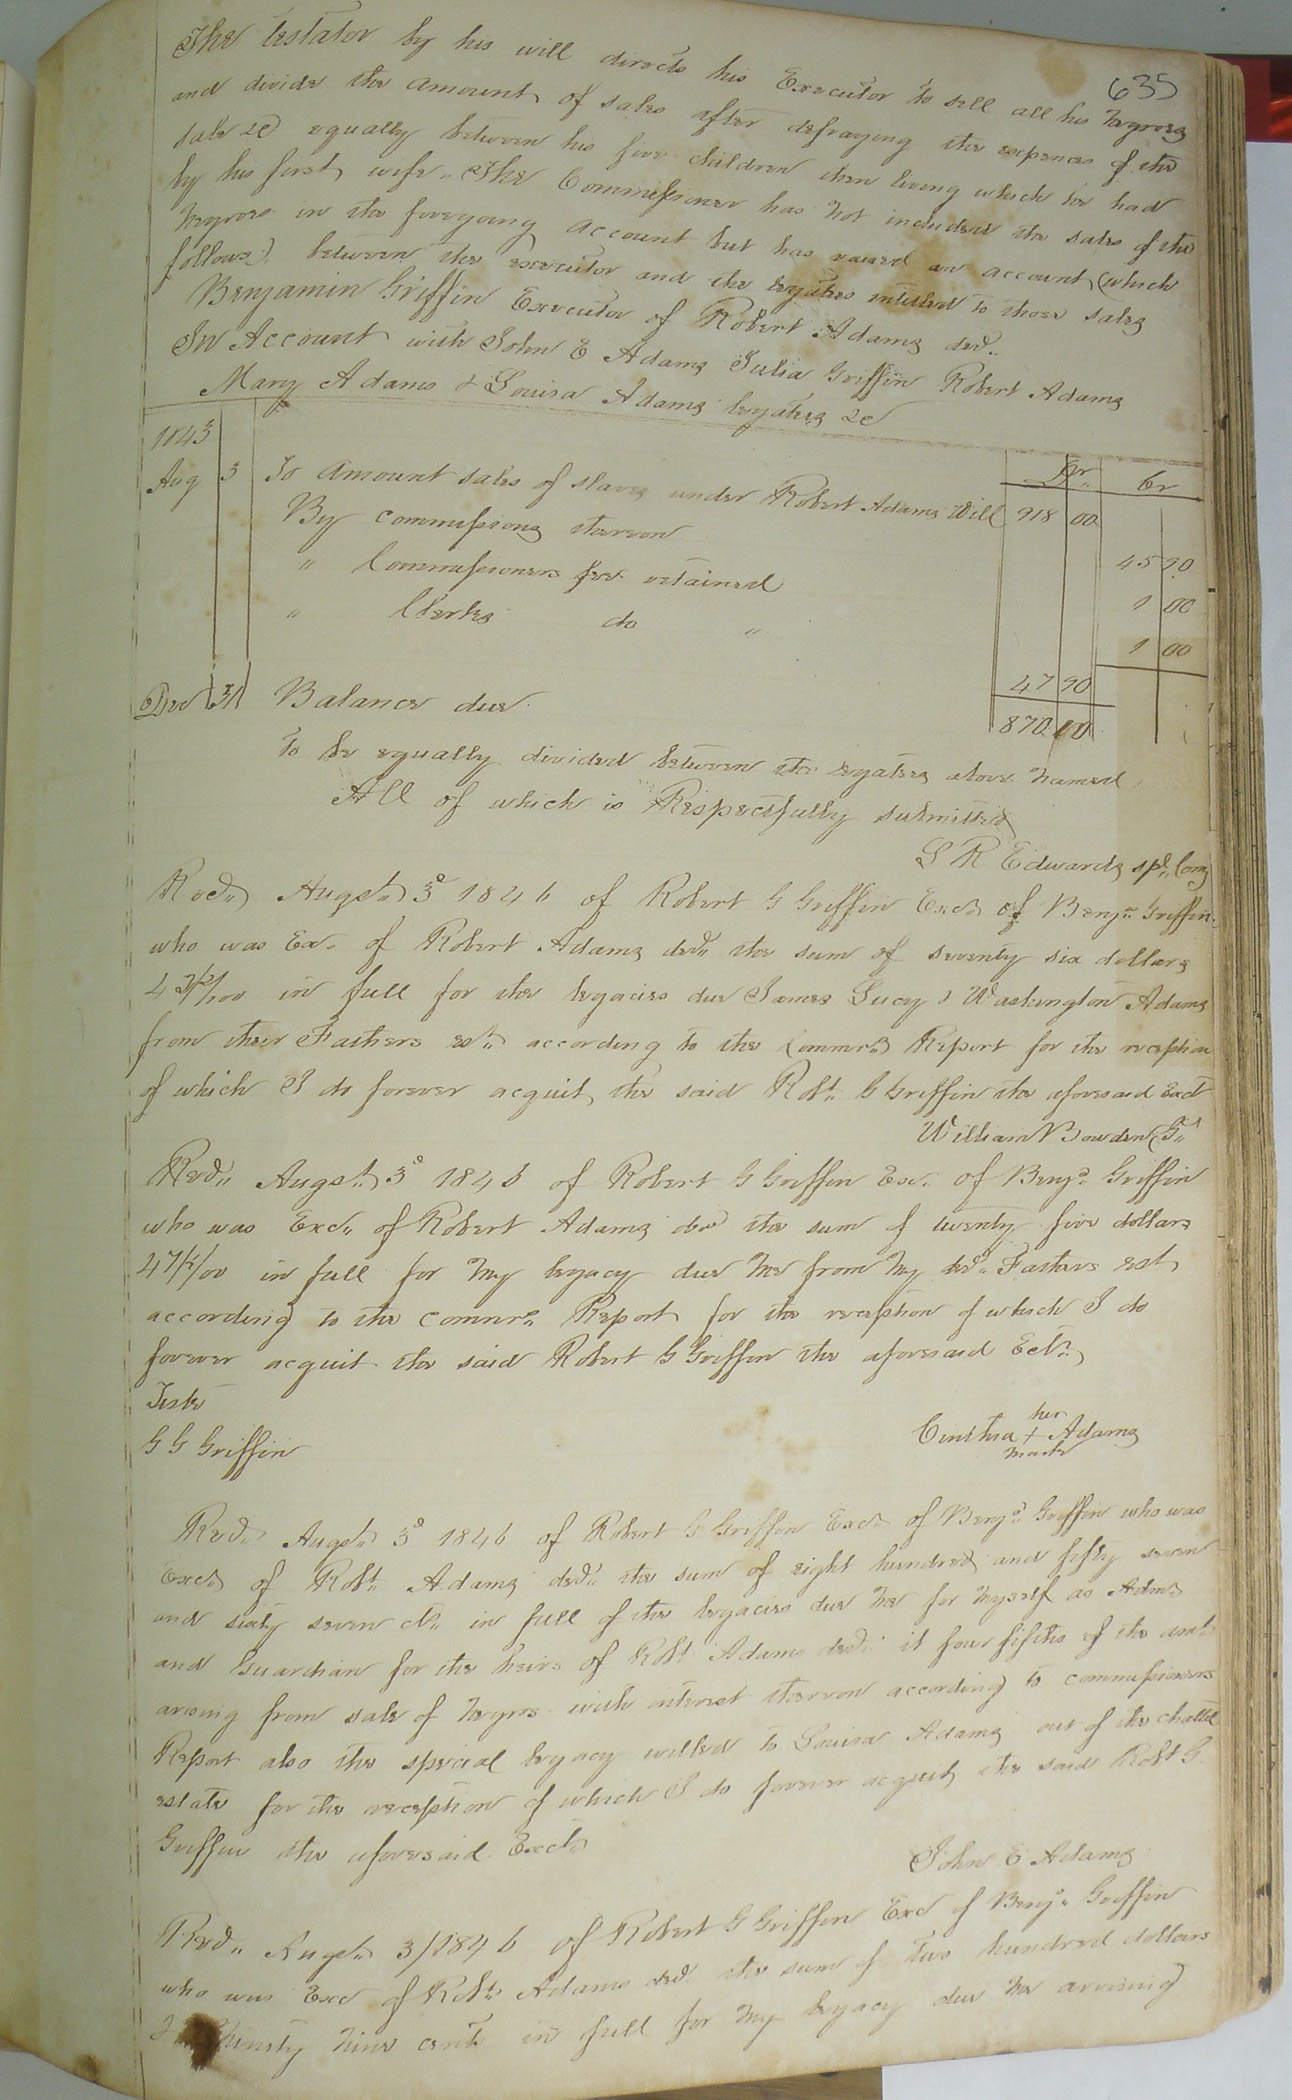 635
The testator by his will directs his Executor to sell all his Negroes
and divide the amount of sales after defraying the expences of the
sale &c equally between his five children then living which he had
by his first wife. The Commissioner has not included the sales of the
Negroes in the foregoing account but has raised an account (which
follows) between the executor and the legatees intitled to those sales
Benjamin Griffin Executor of Robert Adams decd.
In Account with John E Adams Julia Griffin Robert Adams
Mary Adams & Louisa Adams legatees &c
1843 Dr. Cr
Aug 3 To Amount sales of slaves under Robert Adams Will 918 00
By commissions thereon 45 90
" Commissioners fee retained 1 00
" Clerks do " 1 00
47 90
Dec 31 Balance due 870 10
to be equally divided between the legatees above named
All of which is Respectfully submitted
L R Edwards spl. Com
Recd. Augst. 3d 1846 of Robert G Griffin Exct. of Benja. Griffin
who was Ex. of Robert Adams decd. the sum of seventy six dollars
42½/100 in full for the legacies due James Lucy & Washington Adams
from their Fathers est. according to the Commrs. Report for the reception
of which I do forever acquit the said Robt. G Griffin the aforesaid Exct
William Bowden G.
Recd. Augst. 3d 1846 of Robert G Griffin Ex. of Benja. Griffin
who was Exc. of Robert Adams decd the sum of twenty five dollars
47½/00 in full for my legacy due me from my decd. Fathers est
according to the Commrs. Report for the reception of which I do
forever acquit the said Robert G Griffin the aforesaid Ect.
Teste
G G Griffin
her
Cinthia + Adams
mark
Recd. Augst. 3d 1846 of Robert G Griffin Exct. of Benja. Griffin who was
Exct. of Robt. Adams decd. the sum of eight hundred and fifty seven
and sixty seven cts. in full of the legacies due me for myself as Admr
and Guardian for the heirs of Robt Adams decd. it four fifths of the amt.
arising from sale of Negros with interest thereon according to commissioners
Report also the special legacy willed to Louisa Adams out of the chattel
estate for the reception of which I do forever acquit the said Robt G.
Griffin the aforesaid Exct.
John E Adams
Recd. Augst. 3/1846 of Robert G Griffin Exc of Benja. Griffin
who was Exc of Robt. Adams decd the sum of two hundred dollars
& thirty nine cents in full for my legacy due me arrising